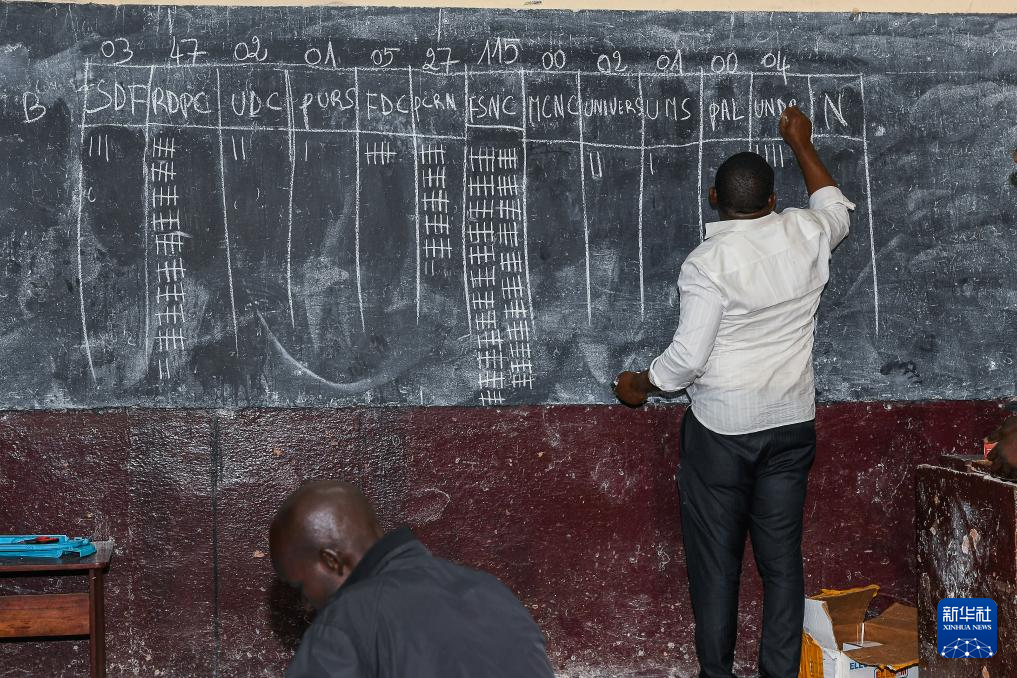 03 47 02 01 05 27 115 00 02 01 00 04
B SDF RDPC UDC PURS FDC PCRN FSNC MCNC UNIVERS UMS PAL UNDP N
新华社
XINHUA NEWS